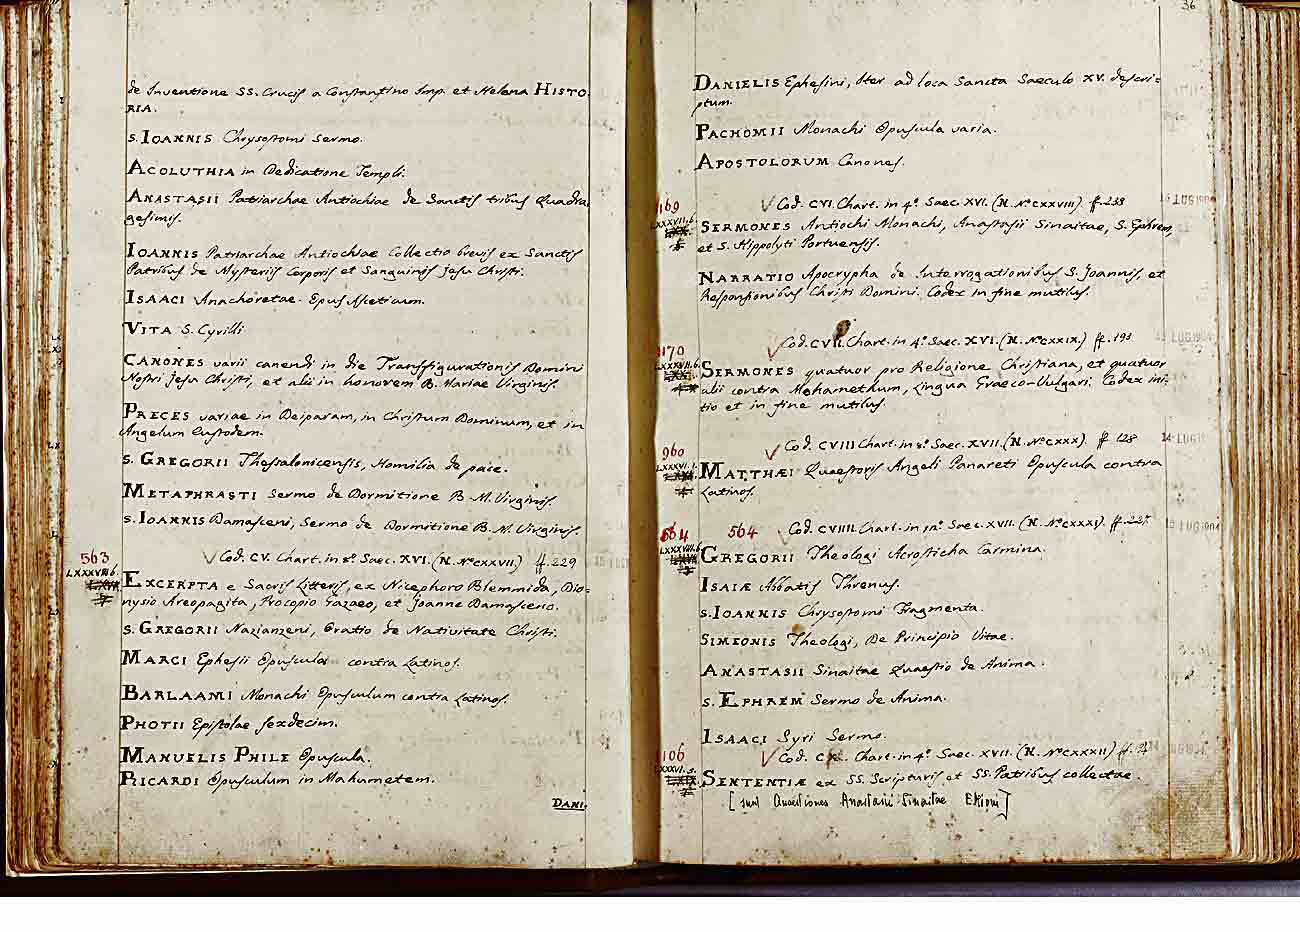 de Inventione SS. Crucis a Constantino Imp. et Helena HISTO-
RIA.
S. IOANNIS Chrysostomi Sermo.
ACOLUTHIA in Dedicatione Templi.
ANASTASII Patriarchae Antiochiae de Sanctis tribus Quadra
gesimis.
IOANNIS Patriarchae Antiochiae Collectio brevis ex Sanctis
Patribus de Mysteriis Corporis et Sanguinis Jesu Christi.
ISAACI Anachoretae Opus Asceticum.
VITA S. Cyrilli
CANONES varii canendi in die Transfigurationis Domini
Nostri Jesu Christi, et alii in honorem B. Mariae Virginis.
PRECES variae in Deiparam, in Christum Dominum, et in
Angelum Custodem.
S. GREGORII Thessalonicensis, Homilia de pace.
METAPHRASTI Sermo de Dormitione B. M. Virginis.
S. IOANNIS Damasceni, Sermo de Dormitione B. M. Virginis.
563 Cod. CV. Chart. in 8º Saec. XVI. (N. Nº CXXVII.) ff. 229
LXXXVIII.6.
EXCERPTA e Sacris Litteris, ex Nicephoro Blemmida, Dio-
nysio Areopagita, Procopio Gazaeo, et Joanne Damasceno.
S. GREGORII Nazianzeni, Oratio de Nativitate Christi.
MARCI Ephesii Opuscula contra Latinos.
BARLAAMI Monachi Opusculum contra Latinos.
PHOTII Epistolae sexdecim.
MANUELIS PHILE Opuscula.
RICARDI Opusculum in Mahumetem.
DANI.
36
DANIELIS Ephesini, Iter ad loca Sancta Saeculo XV. descri-
ptum.
PACHOMII Monachi Opuscula varia.
APOSTOLORUM Canones.
169 Cod. CVI. Chart. in 4º Saec. XVI. (N. Nº CXXVIII.) ff. 233
LXXXVII.6.
SERMONES Antiochi Monachi, Anastasii Sinaitae, S. Ephrem,
et S. Hippolyti Portuensis.
NARRATIO Apocrypha de Interrogationibus S. Joannis, et
Responsionibus Christi Domini. Codex in fine mutilus.
170 Cod. CVII. Chart. in 4º Saec. XVI. (N. Nº CXXIX.) ff. 193
SERMONES quatuor pro Religione Christiana, et quatuor
alii contra Mahamethum, Lingua Graeco-Vulgari. Codex ini-
tio et in fine mutilus.
960 Cod. CVIII Chart. in 8º Saec. XVII. (N. Nº CXXX.) ff. 128
LXXXVI.1.
MATTHÆI Quaestoris Angeli Panareti Opuscula contra
Latinos.
564 564 Cod. CVIIII. Chart. in 12º Saec. XVII. (N. Nº CXXXI.) ff. 227
LXXXVIII.6
GREGORII Theologi Acrosticha Carmina.
ISAIÆ Abbatis Threnus.
S. IOANNIS Chrysostomi Fragmenta.
SIMEONIS Theologi, De Principio Vitae.
ANASTASII Sinaitae Quaestio de Anima.
S. EPHREM Sermo de Anima.
ISAACI Syri Sermo.
106 Cod. CX. Chart. in 4º Saec. XVII. (N. Nº CXXXII) ff.
LXXXVI.5.
SENTENTIÆ ex SS. Scripturis et SS. Patribus collectae.
[sunt Quaestiones Anastasii Sinaitae]